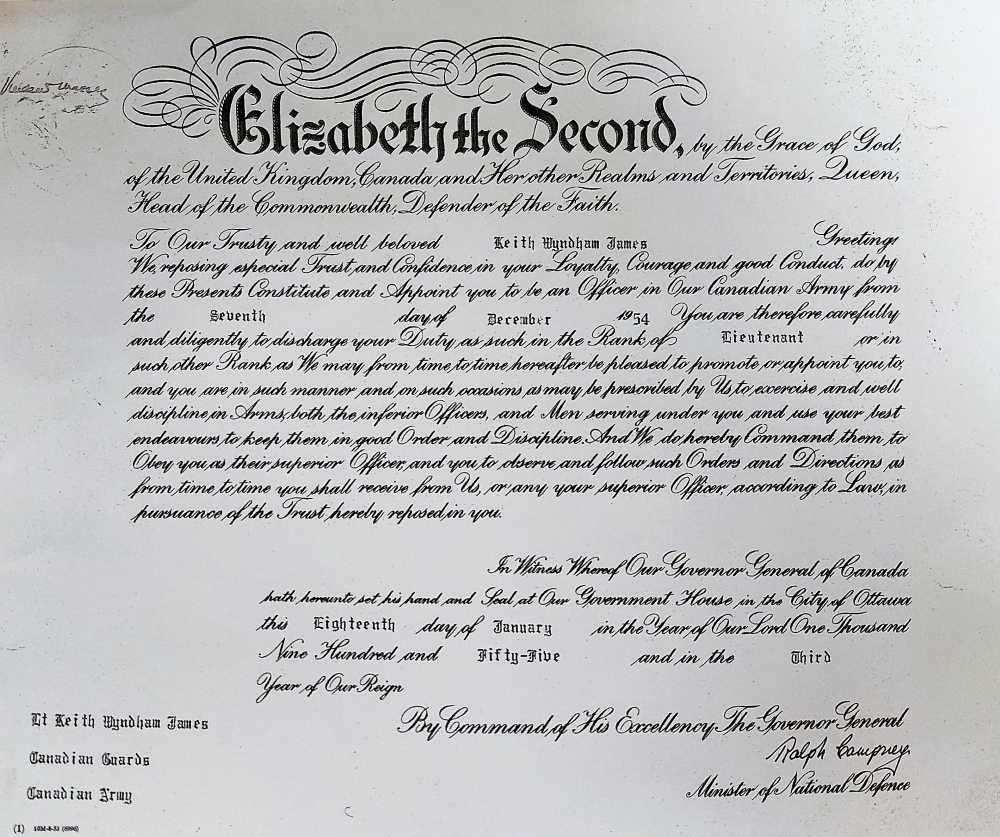 Vincent Massey
Elizabeth the Second, by the Grace of God,
of the United Kingdom, Canada and Her other Realms and Territories, Queen,
Head of the Commonwealth, Defender of the Faith.
To Our Trusty and well beloved Keith Wyndham James Greeting:
We, reposing especial Trust and Confidence, in your Loyalty, Courage and good Conduct, do by
these Presents Constitute and Appoint you to be an Officer in Our Canadian Army from
the Seventh day of December 1954 You are therefore, carefully
and diligently to discharge your Duty as such in the Rank of Lieutenant or in
such other Rank as We may from time to time hereafter be pleased to promote or appoint you to,
and you are in such manner and on such occasions as may be prescribed by Us to exercise and well
discipline in Arms, both the inferior Officers, and Men serving under you and use your best
endeavours to keep them in good Order and Discipline. And We do hereby Command them to
Obey you as their superior Officer, and you to observe and follow such Orders and Directions as
from time to time you shall receive from Us, or any your superior Officer, according to Law, in
pursuance of the Trust hereby reposed in you.
In Witness Whereof Our Governor General of Canada
hath hereunto set his hand and Seal at Our Government House in the City of Ottawa
this Eighteenth day of January in the Year of Our Lord One Thousand
Nine Hundred and Fifty-Five and in the Third
Year of Our Reign
By Command of His Excellency The Governor General
Ralph Campney
Minister of National Defence
Lt Keith Wyndham James
Canadian Guards
Canadian Army
(1) 10M-8-53 (6996)